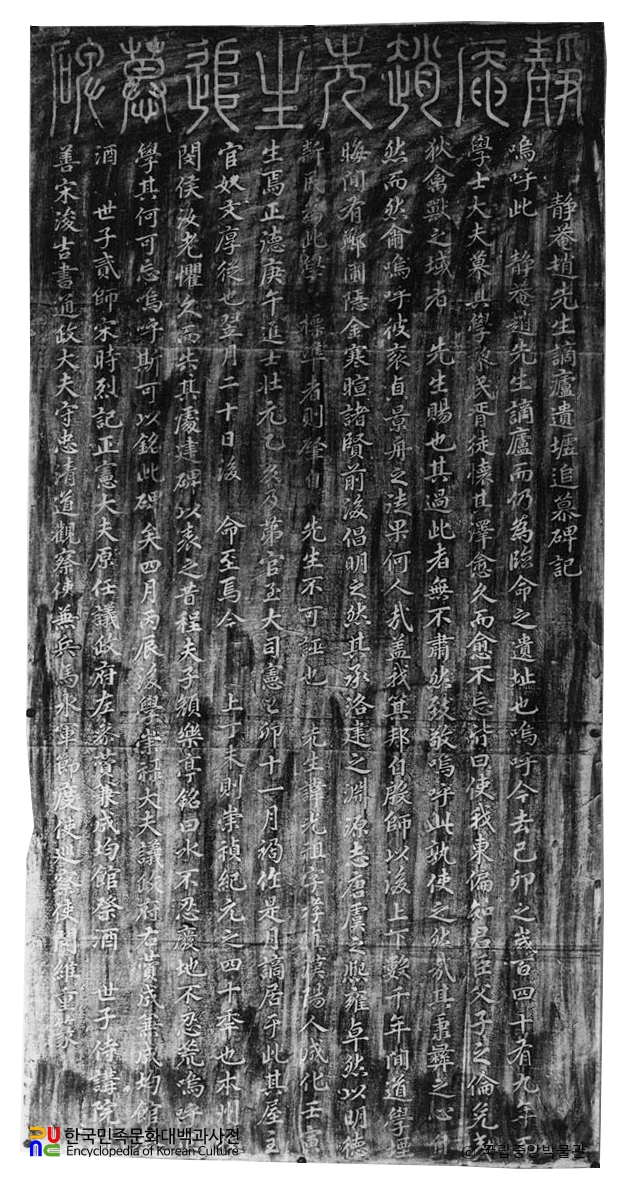 靜庵趙先生追慕碑
靜菴趙先生謫廬遺墟追慕碑記
嗚呼此 靜菴趙先生謫廬而仍爲臨命之遺址也嗚呼今去己卯之歲百四十有九年矣
學士大夫慕其學黎民胥徒懷其澤愈久而愈不忘皆曰使我東偏知君臣父子之倫免夷
狄禽獸之域者 先生賜也其過此者無不肅然致敬嗚呼此孰使之然哉其秉彝之心自
然而然爾嗚呼彼袞貞景舟之徒果何人哉盖我箕邦自殷師以後上下數千年間道學堙
晦間有鄭圃隱金寒暄諸賢前後倡明之然其承洛建之淵源志唐虞之熙雍卓然以明德
新民爲此學之標準者則肇自 先生不可誣也 先生諱光祖字孝直漢陽人成化壬寅
生焉正德庚午進士壯元乙亥及第官至大司憲己卯十一月禍作是月謫居于此其屋主
官奴文厚從也翌月二十日後 命至焉今 上丁未則崇禎紀元之四十年也本州
閔侯汝老懼久而失其處建碑以表之昔程夫子顔樂亭銘曰水不忍廢地不忍荒嗚呼
學其何可忘嗚呼斯可以銘此碑矣四月丙辰後學崇祿大夫議政府右贊成兼成均館
酒 世子貳師宋時烈記正憲大夫原任議政府左參贊兼成均館祭酒 世子侍講院
善宋浚吉書通政大夫守忠清道觀察使兼兵馬水軍節度使巡察使閔維重篆
한국민족문화대백과사전
Encyclopedia of Korean Culture
© 국립중앙박물관